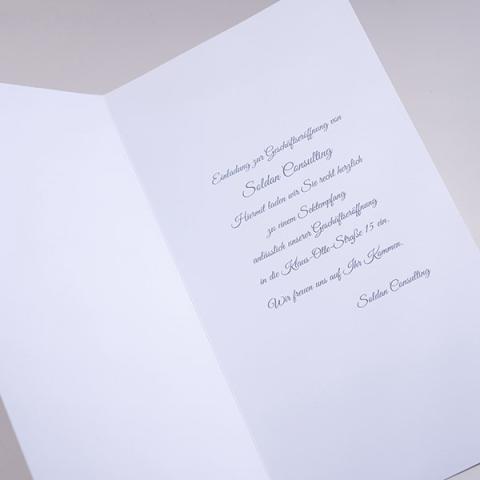 Einladung zur Geschäftseröffnung von
Soldan Consulting
Hiermit laden wir Sie recht herzlich
zu einem Sektempfang
anlässlich unserer Geschäftseröffnung
in die Klaus-Otto-Straße 15 ein.
Wir freuen uns auf Ihr Kommen.
Soldan Consulting